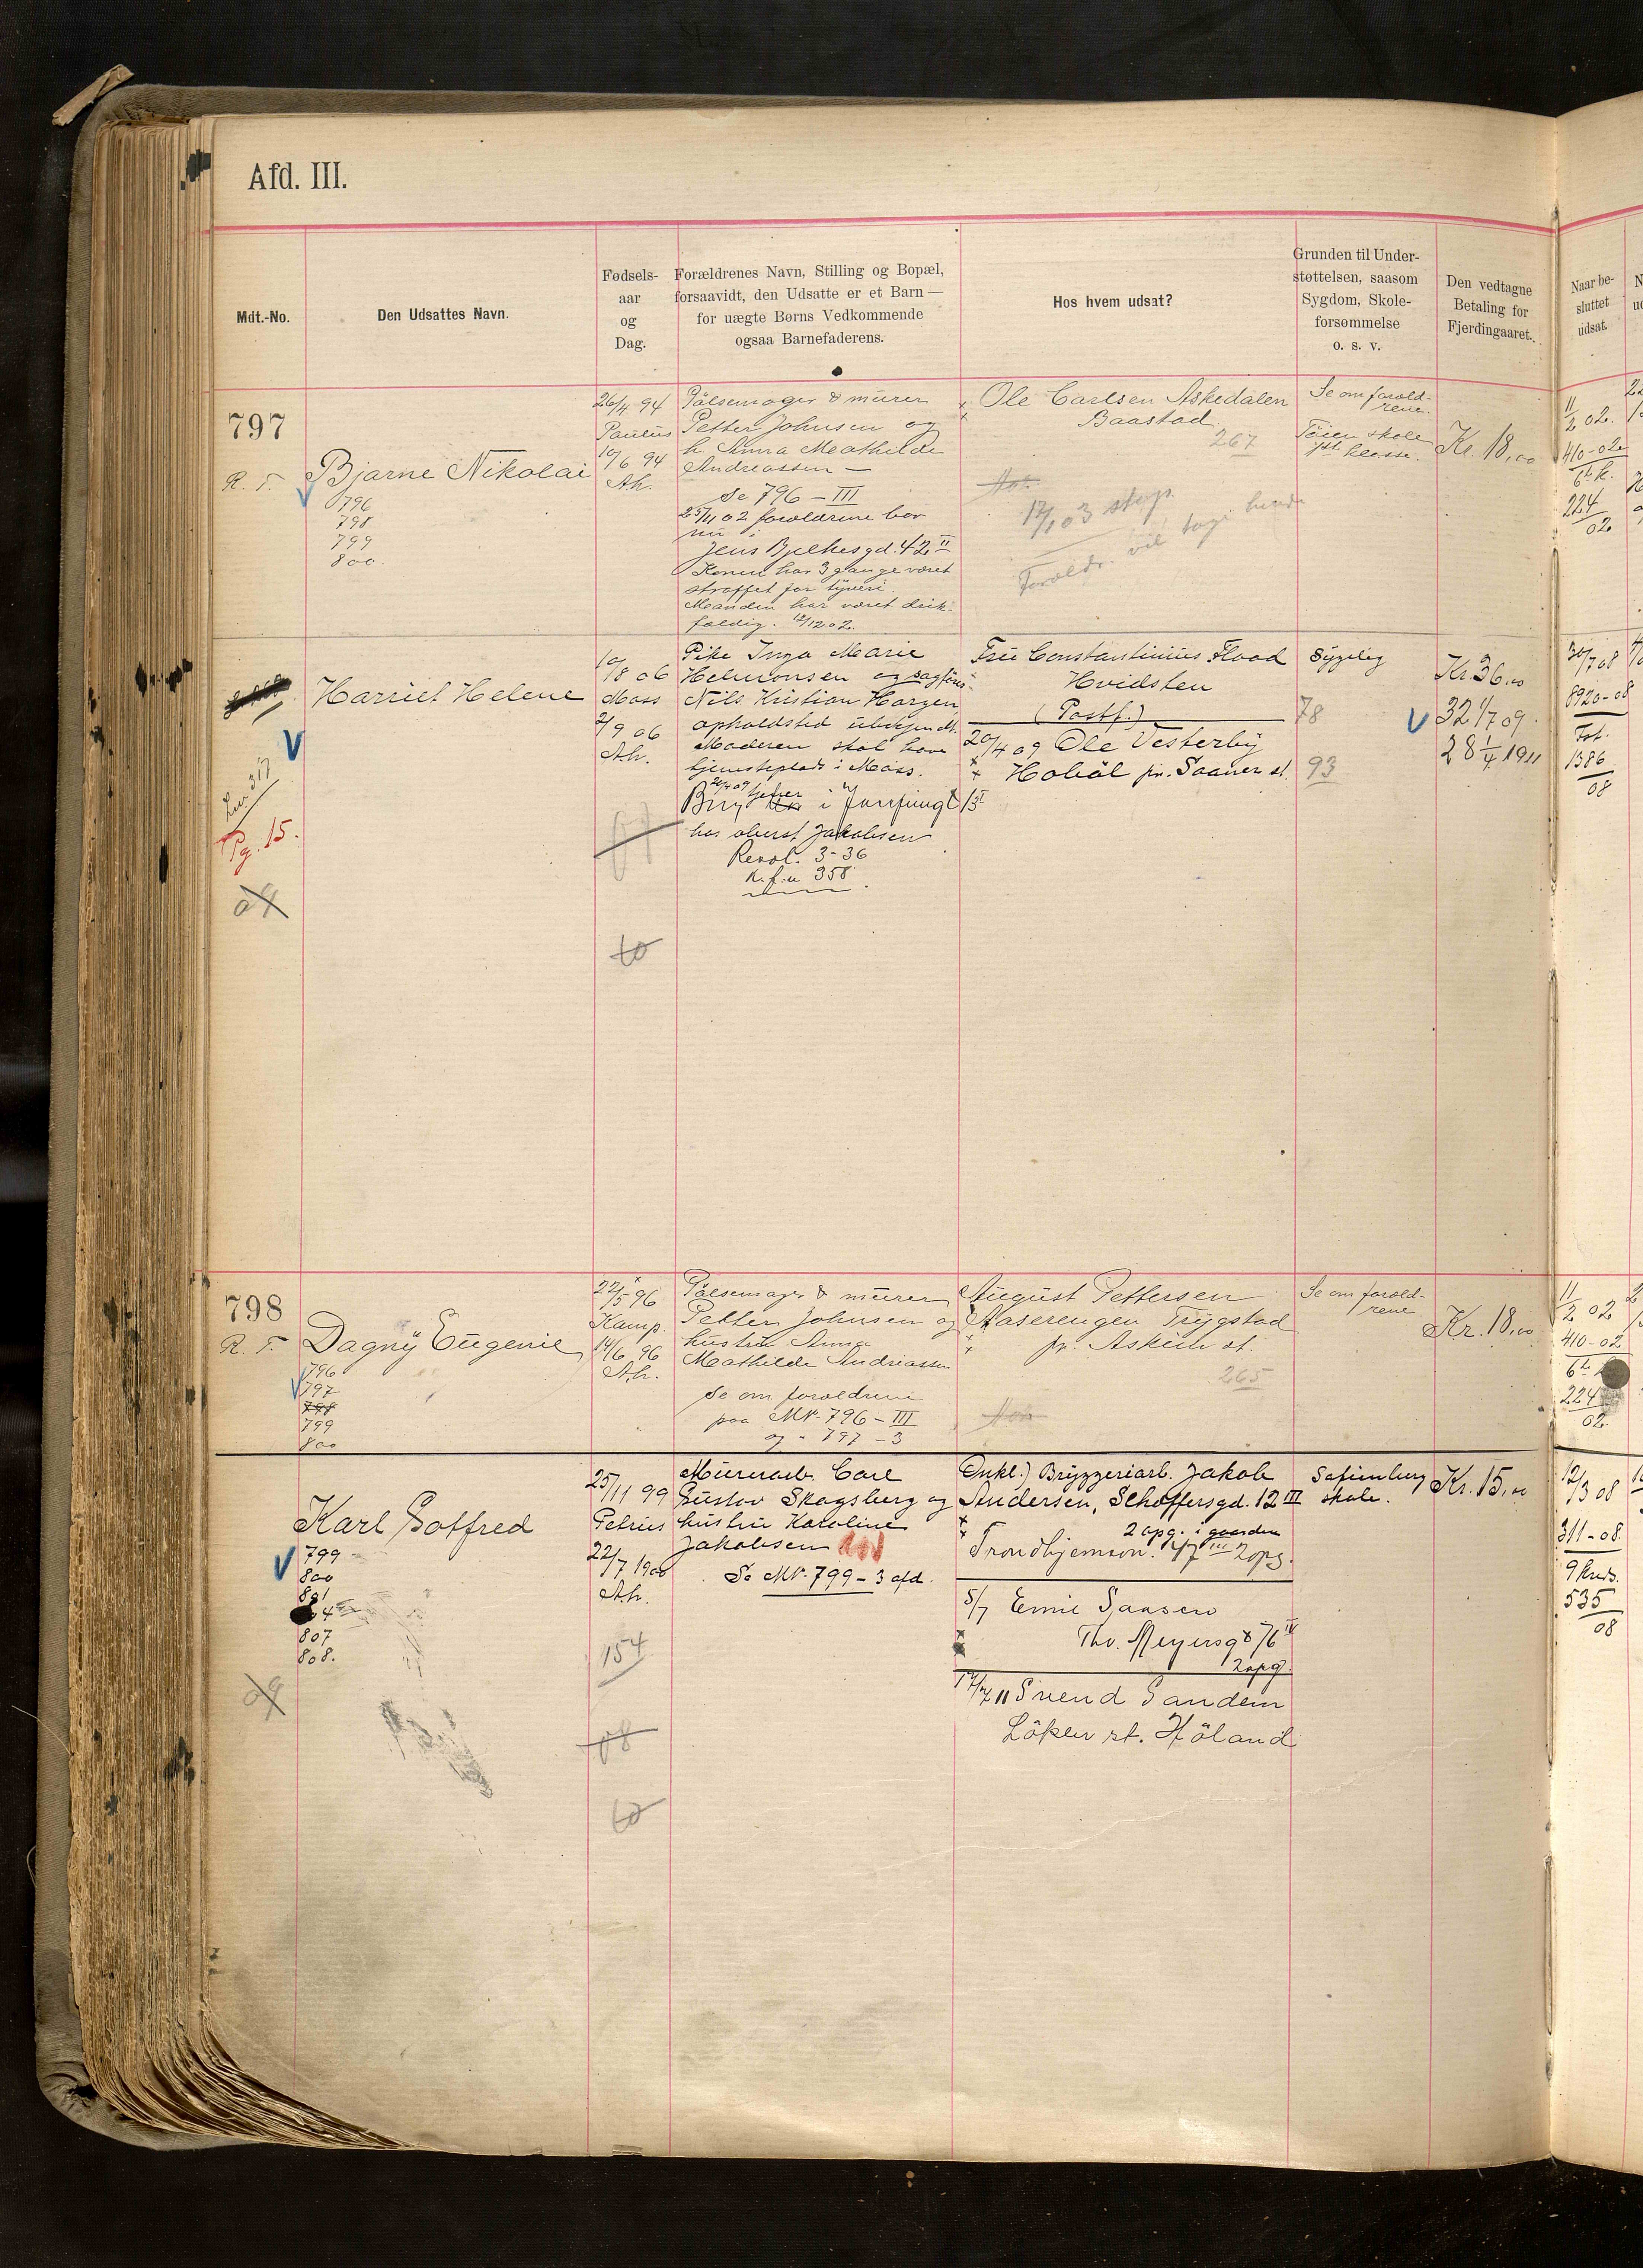 Afd. III.
Mdt.-No.
Den Udsattes Navn.
Fødsels-
aar
og
Dag.
Forældrenes Navn, Stilling og Bopæl,
forsaavidt, den Udsatte er et Barn —
for uægte Børns Vedkommende
ogsaa Barnefaderens.
Hos hvem udsat?
Grunden til Under-
støttelsen, saasom
Sygdom, Skole-
forsømmelse
o. s. v.
Den vedtagne
Betaling for
Fjerdingaaret.
Naar be-
sluttet
udsat.
797
R. F.
Bjarne Nikolai
796
798
799
800.
26/4 94
Paulus
10/6 94
Ah.
Pölsemager & murer
Petter Johnsen og
h Anna Mathilde
Andreassen —
Se 796 – III
25/11 02 forældrene bor
nu i
Jens Bjelkesgd. 42 II
Konen har 3 gange været
straffet for tyveri.
Manden har været drik-
fældig. 12/12 02.
Ole Carlsen Askedalen
Baastad
267
17/1 03 stop.
Foreldr. vil tage hende
Se om foreld-
rene.
Töien skole
klasse.
Kr. 18,00
11/2 02.
410-02
6 k.
224
02
Harriet Helene
Pg. 15.
09
10/8 06
Moss
2/9 06
Ah.
10
Pike Inga Marie
Helmonsen og sagförer
Nils Kristian Horgen,
opholdsted ubekjendt.
Moderen skal have
tjenesteplads i Moss.
20/4 09 tjener
i
hos oberst Jakobsen
Resol. 3-36
K.f.u 358
Fru Constantinius Flood
Hvidsten
(Postf.)
20/4 09 Ole Vesterby
Hobøl pr. Saaner st.
Sygelig
78
93
Kr. 36.00
32 1/7 09.
28 1/4 1911
30/7 08
8920-08
Fat.
1386
08
798
R. F.
Dagny Eugenie
796
797
798
799
800
22/5 96
Kamp.
14/6 96
Ah.
Pölsemager & murer
Petter Johnsen og
hustru Anna
Mathilde Andreassen
Se om forældrene
paa Mt. 796 – III
og " 797 – 3
August Pettersen
Aaserengen Trygstad
pr. Askim st.
265
Se om foreld-
rene
Kr. 18,00
11/2 02
410-02
6
224
02.
Karl Gotfred
799
800
801
807
808.
09
25/11 99
Petrus
22/7 1900
Ah.
154
08
10
Murerarb. Carl
Gustav Skogsberg og
hustru Karoline
Jakobsen
Se Mt. 799 – 3 afd.
Onkel.) Bryggeriarb. Jakob
Andersen, Schøffersgd. 12 III
2 opg. i gaarden
Trondhjemsvn. 47 III 2 opg.
5/7 Emil Paasen
Thv. Meyersgd 76 IV
2 opg
17/7 11 Svend Sandem
Löken st. Höland
skole.
Kr. 15,00
12/3 08
311-08.
9 kreds.
535
08